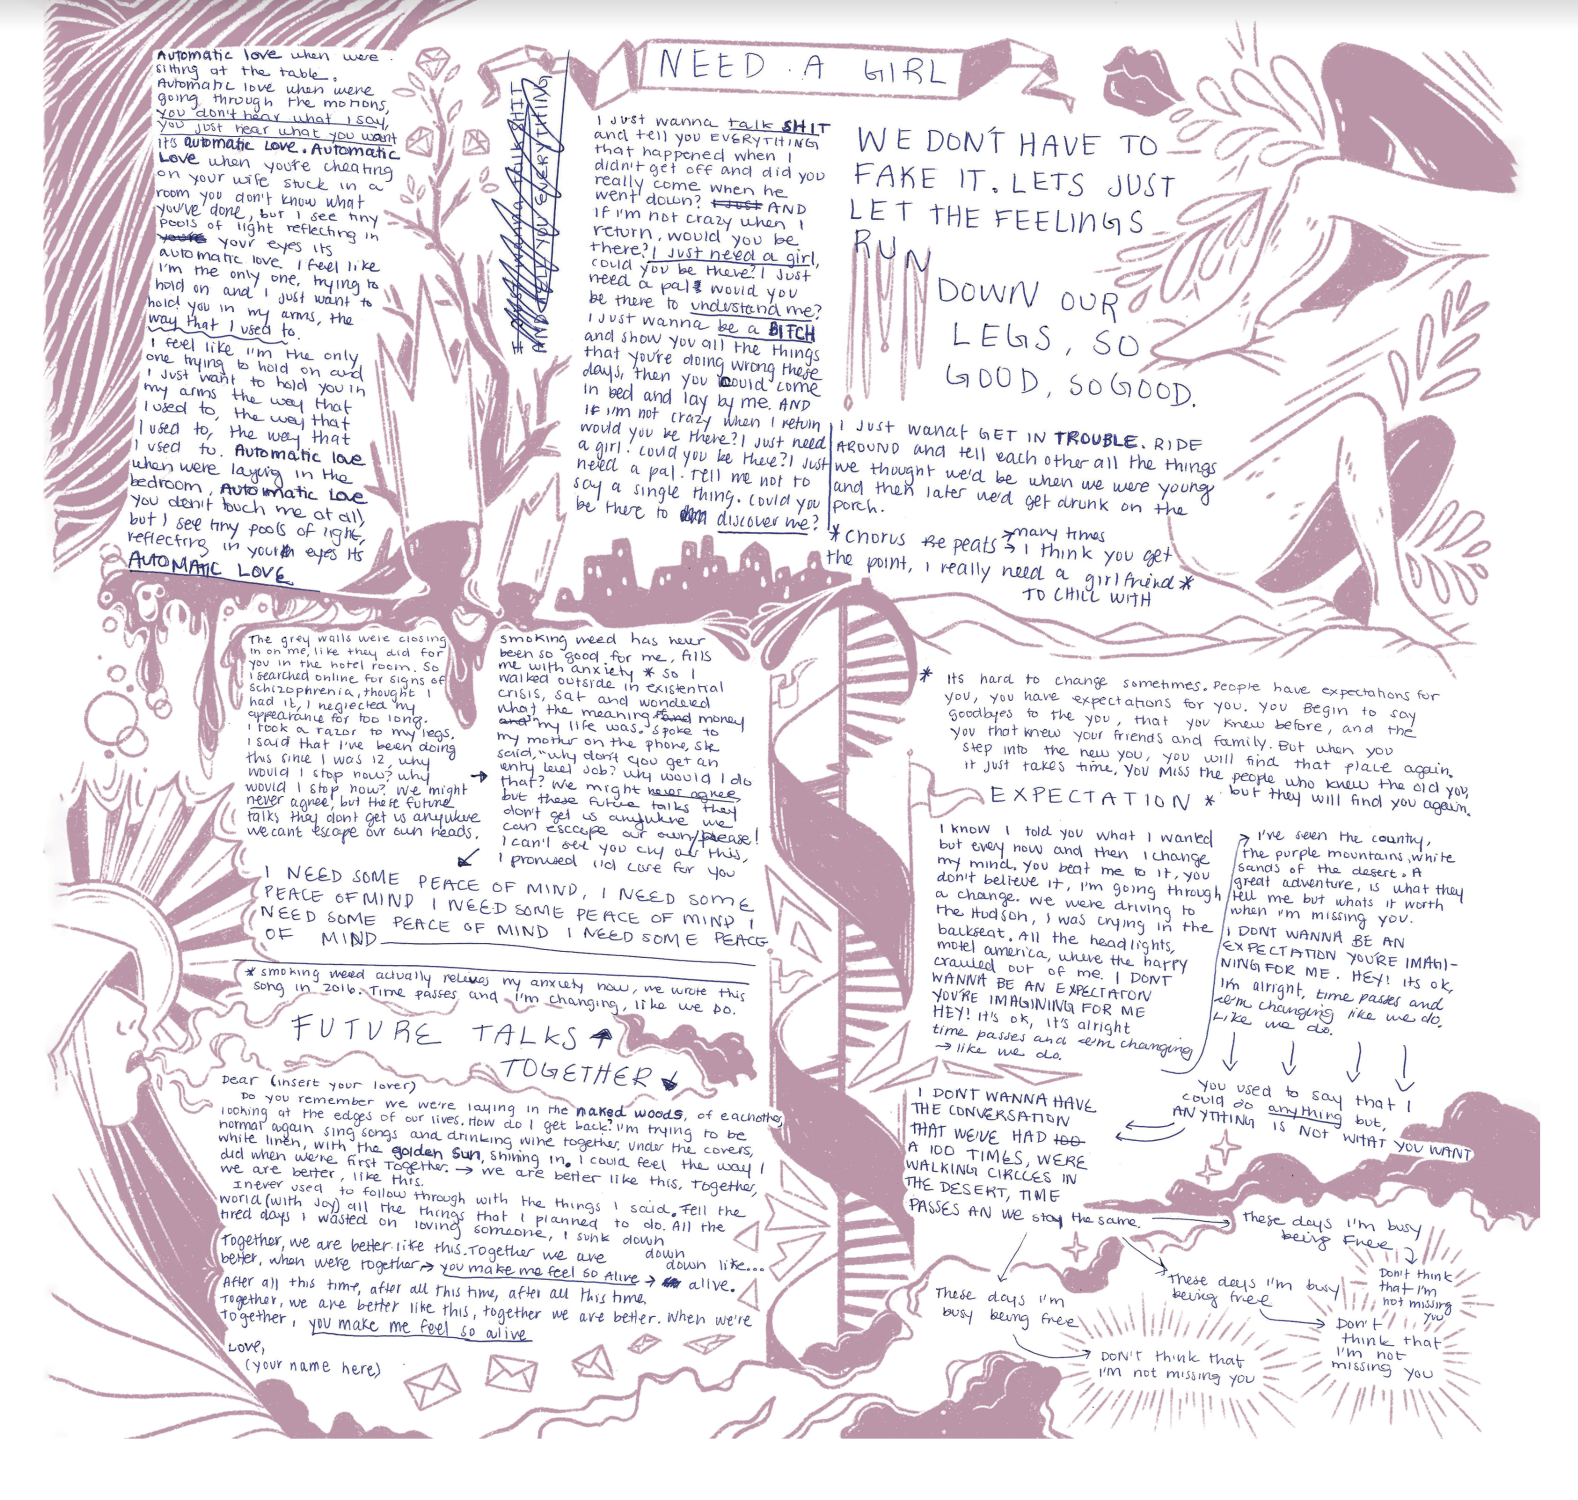 Automatic love when were
sitting at the table.
Automatic love when were
going through the motions,
you don't hear what I say,
you just hear what you want
its automatic love. Automatic
Love when you're cheating
on your wife stuck in a
room you don't know what
you've done, but I see tiny
pools of light reflecting in
your eyes its
automatic love. I feel like
I'm the only one, trying to
hold on and I just want to
hold you in my arms, the
way that I used to.
I feel like I'm the only
one trying to hold on and
I just want to hold you in
my arms the way that
I used to, the way that
I used to, the way that
I used to. Automatic love
when were laying in the
bedroom, Automatic Love
you don't touch me at all,
but I see tiny pools of light,
reflecting in your eyes its
AUTOMATIC LOVE
I JUST WANNA TALK SHIT
AND TELL YOU EVERYTHING
NEED A GIRL
I Just wanna talk SHIT
and tell you EVERYTHING
that happened when I
didn't get off and did you
really come when he
went down? I just AND
if I'm not crazy when I
return, would you be
there? I just need a girl,
could you be there? I Just
need a pal would you
be there to understand me?
I Just wanna be a BITCH
and show you all the things
that you're doing wrong these
days, then you could come
in bed and lay by me. AND
IF I'm not crazy when I return
would you be there? I Just need
a girl! Could you be there? I Just
need a pal. Tell me not to
say a single thing. Could you
be there to discover me?
WE DON'T HAVE TO
FAKE IT. LETS JUST
LET THE FEELINGS
RUN
DOWN OUR
LEGS, SO
GOOD, SO GOOD.
I Just wanat GET IN TROUBLE. RIDE
AROUND and tell each other all the things
we thought we'd be when we were young
and then later we'd get drunk on the
porch.
* Chorus Repeats → many times
→ I think you get
the point, I really need a girlfriend *
TO CHILL WITH
The grey walls were closing
in on me, like they did for
you in the hotel room. So
I searched online for signs of
Schizophrenia, thought I
had it, I neglected my
appearance for too long.
I took a razor to my legs.
I said that I've been doing
this since I was 12, why
would I stop now? why
would I stop now? We might
never agree, but these future
talks they dont get us anywhere
we cant escape our own heads.
Smoking weed has never
been so good for me, fills
me with anxiety * so I
walked outside in existential
crisis, sat and wondered
what the meaning and money
and my life was. Spoke to
my mother on the phone, she
said, "why don't you get an
entry level job? why would I do
that? We might never agree,
but these future talks they
don't get us anywhere we
can esccape our own/please!
I can't see you cry all this,
I promised I'd care for you
I NEED SOME PEACE OF MIND, I NEED SOME
PEACE OF MIND I NEED SOME PEACE OF MIND I
NEED SOME PEACE OF MIND I NEED SOME PEACE
OF MIND
* smoking weed actually relieves my anxiety now, we wrote this
song in 2016. Time passes and I'm changing, like we do.
FUTURE TALKS ↑
TOGETHER ↓
Dear (insert your lover)
Do you remember we we're laying in the naked woods, of eachother,
looking at the edges of our lives. How do I get back? I'm trying to be
normal again sing songs and drinking wine together. Under the covers,
white linen, with the golden sun, shining in. I could feel the way I
did when we're first together. → we are better like this. Together,
we are better, like this.
I never used to follow through with the things I said. Tell the
world (with joy) all the things that I planned to do. All the
tired days I wasted on loving someone, I sunk down
Together, we are better like this. Together we are down
better, when were together → down like...
you make me feel so Alive → alive.
After all this time, after all this time, after all this time,
Together, we are better like this, together we are better. When we're
together, you make me feel so alive
Love,
(your name here)
* Its hard to change sometimes. People have expectations for
you, you have expectations for you. You begin to say
goodbyes to the you, that you knew before, and the
you that knew your friends and family. But when you
step into the new you, you will find that place again.
It just takes time. You miss the people who knew the old you,
but they will find you again.
EXPECTATION *
I know I told you what I wanted
but every now and then I change
my mind. You beat me to it, you
don't believe it, I'm going through
a change. We were driving to
the Hudson, I was crying in the
backseat. All the headlights,
motel america, where the happy
crawled out of me. I DONT
WANNA BE AN EXPECTATON
YOU'RE IMAGINING FOR ME
HEY! It's ok, it's alright
time passes and I'm changing
→ like we do.
→ I've seen the country,
the purple mountains, white
sands of the desert. A
great adventure, is what they
tell me but whats it worth
when I'm missing you.
I DONT WANNA BE AN
EXPECTATION YOU'RE IMAGI-
NING FOR ME. HEY! Its ok,
I'm alright, time passes and
I'm changing like we do.
Like we do.
You used to say that I
could do anything but,
ANYTHING IS NOT WHAT YOU WANT
I DONT WANNA HAVE
THE CONVERSATION
THAT WE'VE HAD 100
A 100 TIMES, WERE
WALKING CIRCLES IN
THE DESERT, TIME
PASSES AN WE stay the same.
These days I'm busy
being free
Don't think
that I'm
not missing
you
These days I'm busy
being free
Don't
think that
I'm not
missing you
These days I'm
busy being free
DON'T think that
I'm not missing you